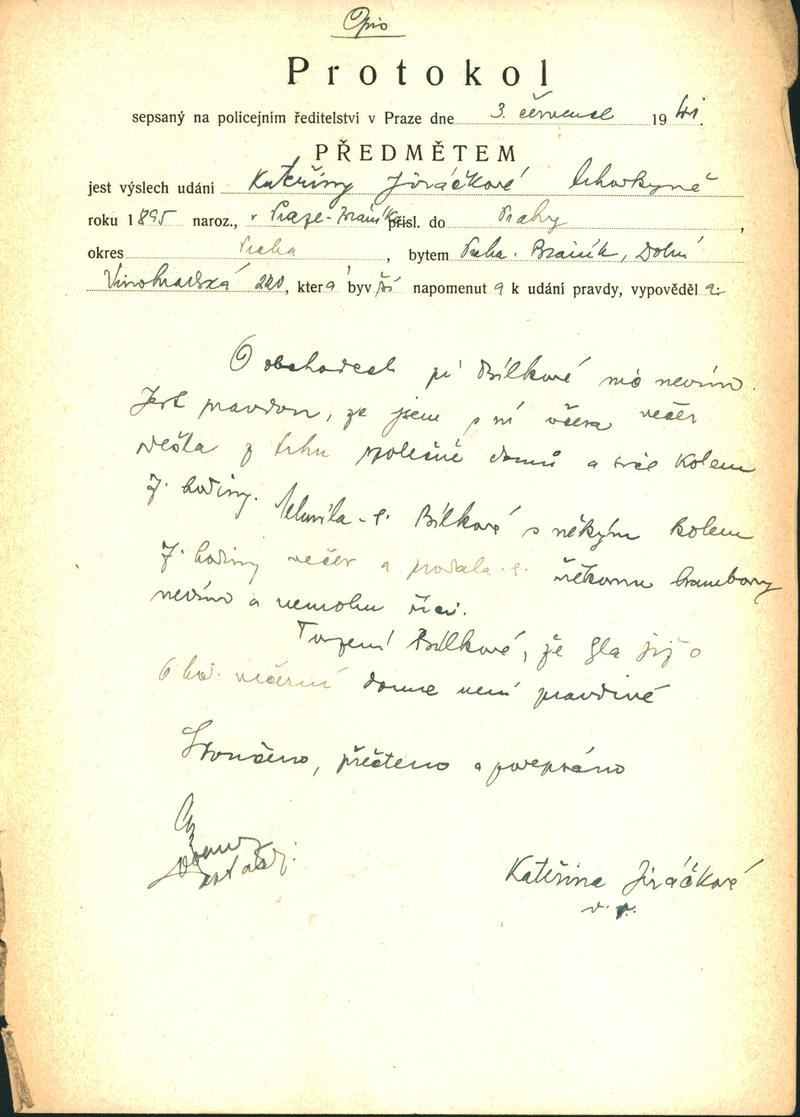 Opis
Protokol
sepsaný na policejním ředitelství v Praze dne 3. července 1941.
PŘEDMĚTEM
jest výslech udání Kateřiny Jiráčkové trhovkyně
roku 1895 naroz., v Praze-Braníku přísl. do Prahy,
okres Praha, bytem Praha-Braník, Dolní
Vinohradská 220, která byvší napomenuta k udání pravdy, vypověděla:
O obchodech pí Bílkové nic nevím.
Jest pravdou, že jsem s ní včera večer
z trhu společně domů a sice kolem
7. hodiny. Mluvila-li Bílková s někým kolem
7. hodiny večer a prodala-li někomu brambory
nevím a nemohu říci.
Tvrzení Bílkové, že šla již o
6 hod. večerní domů není pravdivé
Skončeno, přečteno a podepsáno
Kateřina Jiráčková
v. r.